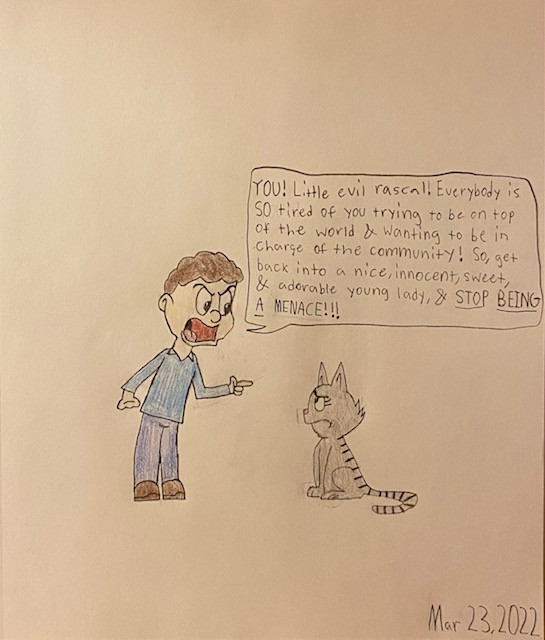 YOU! Little evil rascal! Everybody is
SO tired of you trying to be on top
of the world & wanting to be in
charge of the community! So, get
back into a nice, innocent, sweet,
& adorable young lady, & STOP BEING
A MENACE!!!
Mar 23, 2022